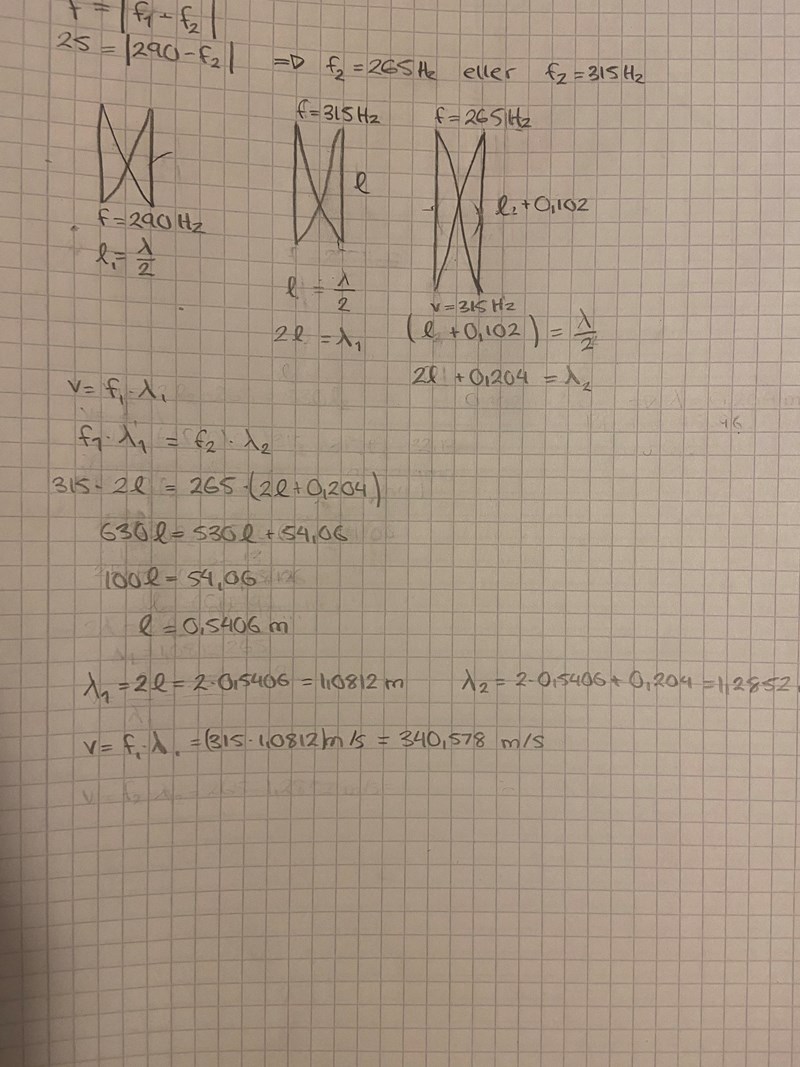 f = |f₁ - f₂|
25 = |290-f₂| => f₂ = 265 Hz eller f₂ = 315 Hz
f=315Hz f=265Hz
l l₁+0,102
f=290 Hz
l₁ = λ/2 l = λ/2 v=315 Hz
2l = λ₁ (l +0,102) = λ/2
2l +0,204 = λ₂
v= f₁·λ₁
f₁·λ₁ = f₂·λ₂
315·2l = 265·(2l+0,204)
630l = 530l + 54,06
100l = 54,06
l = 0,5406 m
λ₁ = 2l = 2·0,5406 = 1,0812 m λ₂ = 2·0,5406 + 0,204 = 1,2852
v= f₁·λ₁ = (315·1,0812)m/s = 340,578 m/s